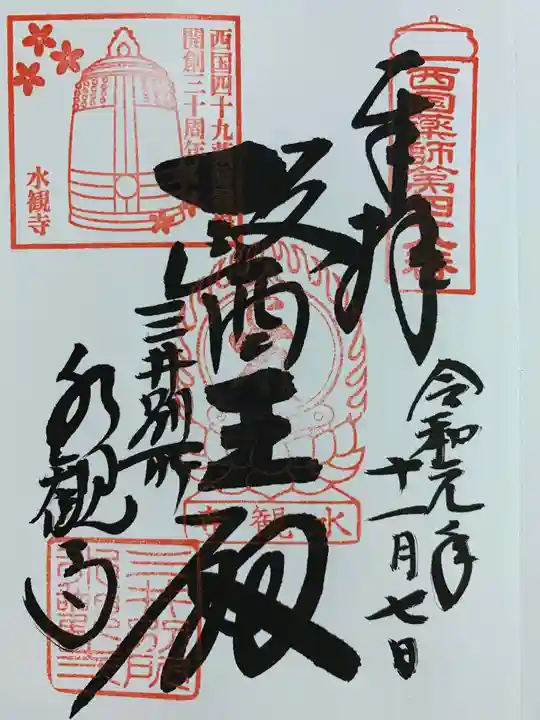 西国薬師第四十八番
奉拝
令和元年
十一月七日
醫王殿
水観寺
三井別所
水観寺
西国四十九薬師霊場
開創三十周年
水観寺